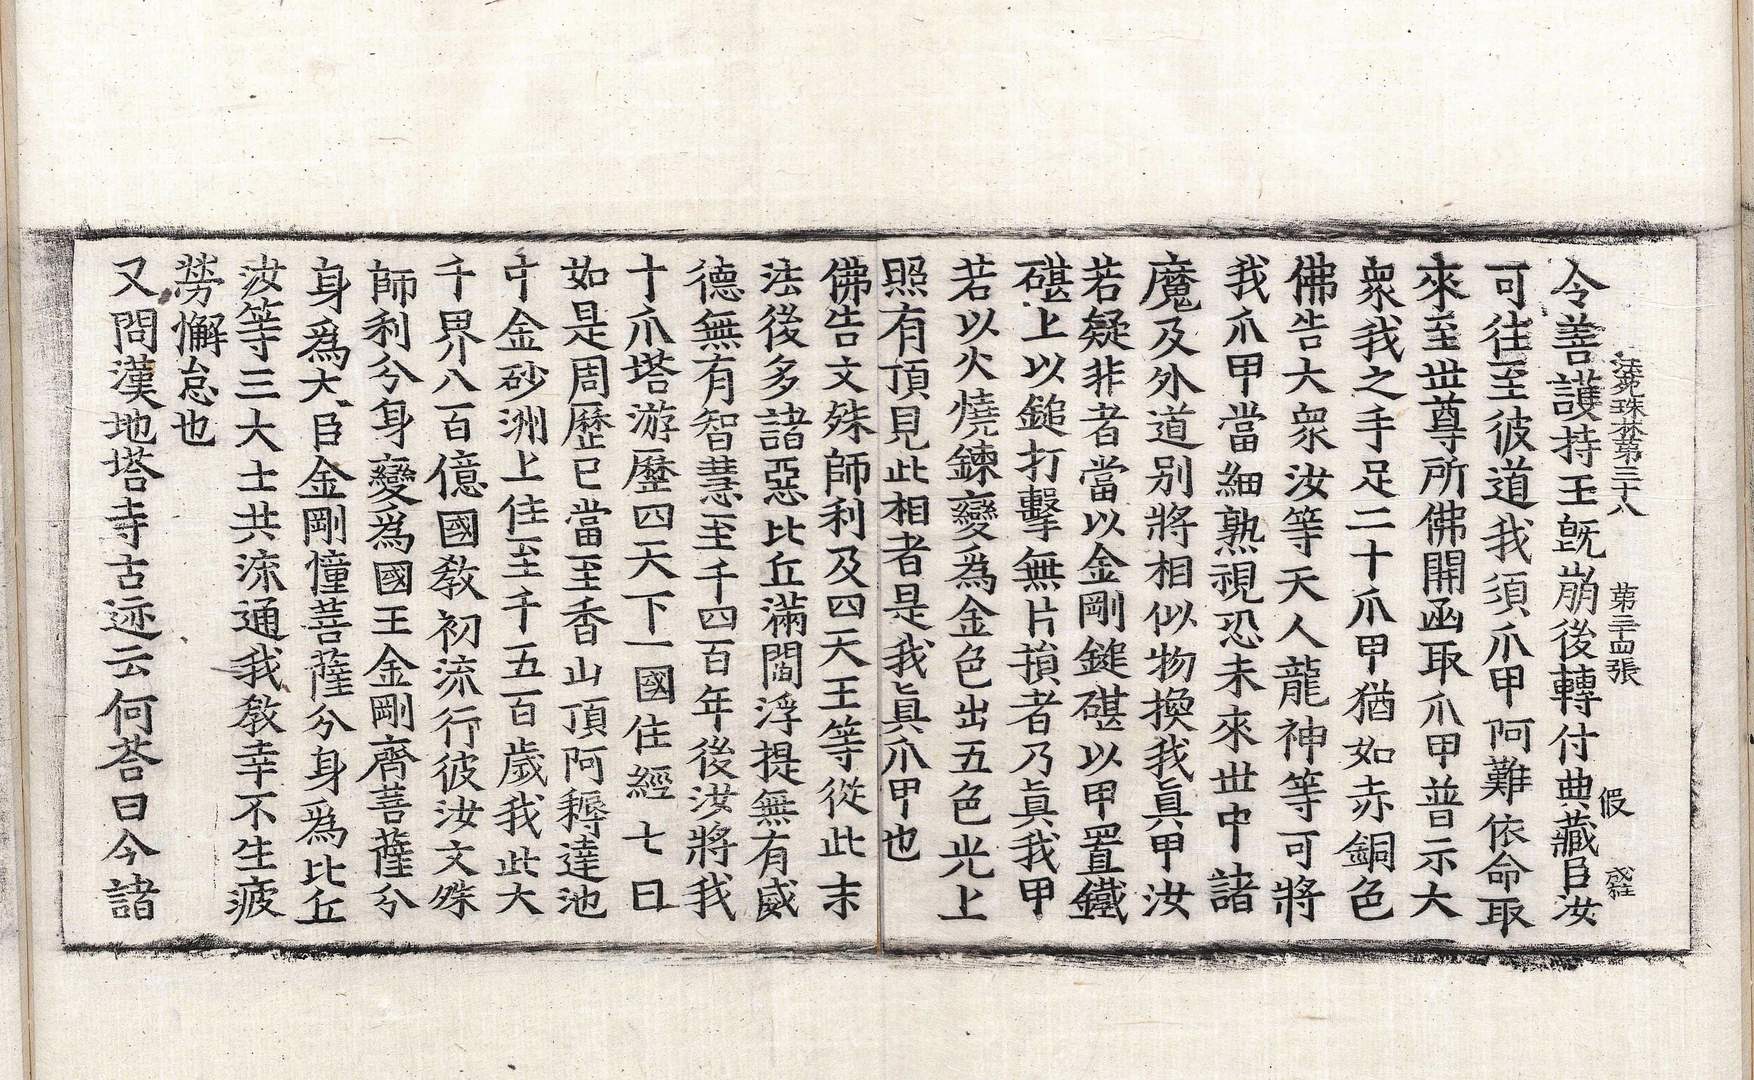 法苑珠林第三十八 第三十四張 假
令善護持王旣崩後轉付典藏臣汝
可往至彼道我須爪甲阿難依命取
來至世尊所佛開函取爪甲普示大
衆我之手足二十爪甲猶如赤銅色
佛告大衆汝等天人龍神等可將
我爪甲當細熟視恐未來世中諸
魔及外道别將相似物換我眞甲汝
若疑非者當以金剛鎚碪以甲置鐵
碪上以鎚打擊無片損者乃眞我甲
若以火燒鍊變爲金色出五色光上
照有頂見此相者是我眞爪甲也
佛告文殊師利及四天王等從此末
法後多諸惡比丘滿閻浮提無有威
德無有智慧至千四百年後汝將我
十爪塔游歷四天下一國住經七日
如是周歷已當至香山頂阿耨達池
中金砂洲上住至千五百歲我此大
千界八百億國教初流行彼汝文殊
師利分身變爲國王金剛齊菩薩分
身爲大臣金剛憧菩薩分身爲比丘
汝等三大士共流通我教幸不生疲
勞懈怠也
又問漢地塔寺古迹云何荅曰今諸